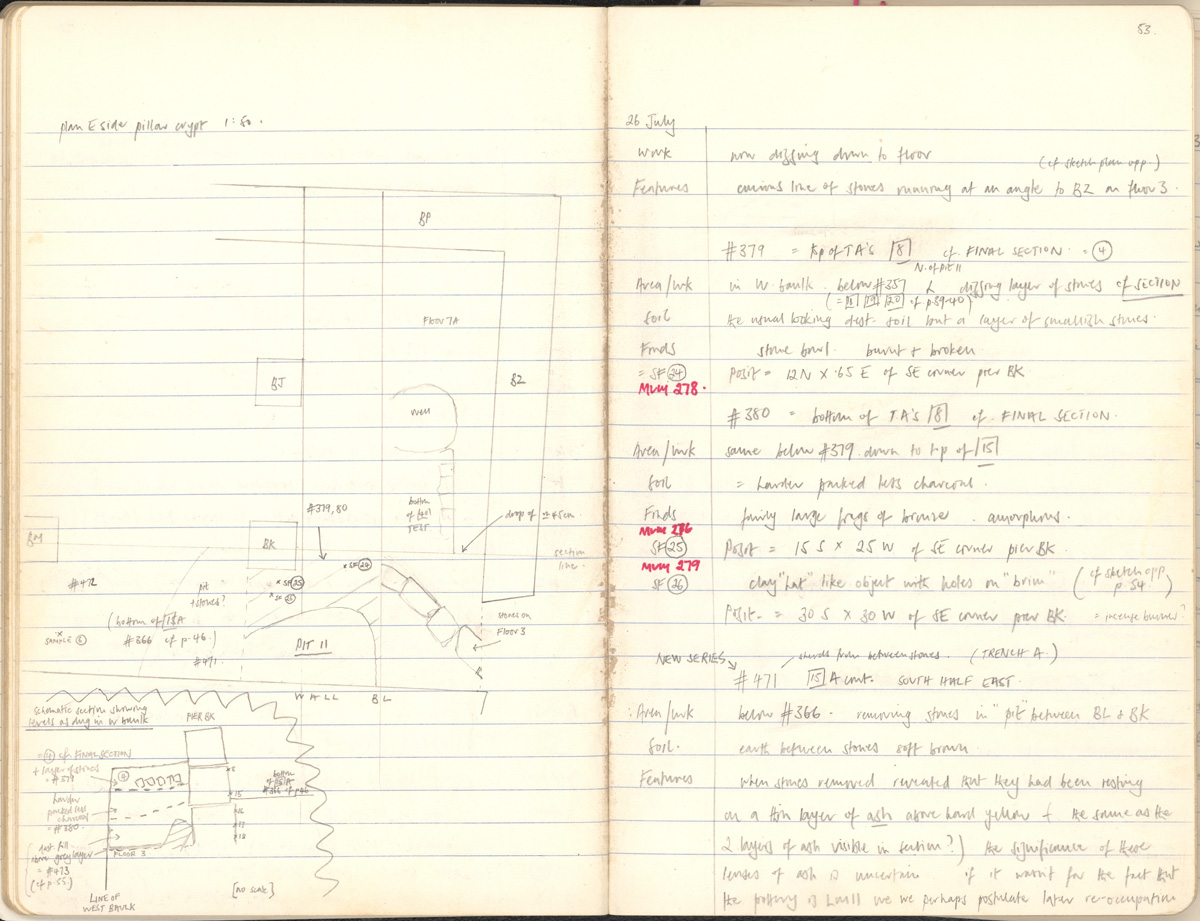 plan E side pillar crypt 1:50.
BP
FLOOR 7A
BJ
BZ
Well
bottom
of
TEST
#379,80
drop of ± 45cm
BM
BK
section
line
#472
pit
+ stones?
× SF(24)
× SF(25)
(bottom of 15A
#366 cf p.46.)
SAMPLE
#471
PIT 11
stones on
FLOOR 3
WALL BL
schematic section showing
levels as dug in W baulk
PIER BK
= (4) cf FINAL SECTION
+ layer of stones
= #379
harder
packed less
charcoal
= #380
bottom
of 15A
#366 cf p46
15
16
17
18
dest. fill
above grey layer
= #473
(cf p.55)
FLOOR 3
LINE OF
WEST BAULK
[no scale]
53.
26 July
Work now digging down to floor (cf sketch plan opp.)
Features curious line of stones running at an angle to BZ on floor 3.
#379 = top of TA's 8 cf. FINAL SECTION = (4)
N. of pit 11
Area/wk in W. baulk below #357 & digging layer of stones cf SECTION
cf p.39-40)
Soil the usual looking dest. soil but a layer of smallish stones.
Finds stone bowl. burnt + broken
= SF(24) Posit = 12N × .65 E of SE corner pier BK
Mum 278.
#380 = bottom of TA's 8 cf. FINAL SECTION.
Area/wk same below #379 down to top of 15
Soil = harder packed less charcoal.
Finds fairly large frags of bronze. amorphous.
Mum 286
SF(25) Posit = 15 S × 25 W of SE corner pier BK.
Mum 279
SF(26) clay "hat" like object with holes on "brim" (cf sketch opp p. 54.)
Posit. = 30 S × 30 W of SE corner pier BK = incense burner?
NEW SERIES sherds from between stones. (TRENCH A.)
#471 15 A cont. SOUTH HALF EAST.
Area/wk below #366. removing stones in "pit" between BL & BK
Soil. earth between stones soft brown.
Features when stones removed revealed that they had been resting
on a thin layer of ash above hard yellow + the same as the
2 layers of ash visible in section?) the significance of these
lenses of ash is uncertain if it wasn't for the fact that
the pottery is LMII we we perhaps postulate later re-occupation